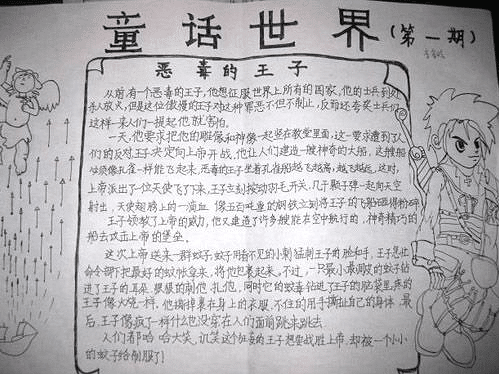 童话世界(第一期)
恶毒的王子
从前,有个恶毒的王子,他想征服世界上所有的国家,他的士兵到处
杀人放火,但是这位傲慢的王子对这种罪恶不但不制止,反而还夸奖士兵们
这样一来人们一提起他就害怕。
一天,他要求把他的雕像和神像一起竖在教堂里面,这一要求遭到了人
们的反对,王子决定向上帝开战,他让人们建造一艘神奇的大船,这艘船
必须像孔雀一样能飞起来,恶毒的王子坐着孔雀船越飞越高,越飞越远,这时,
上帝派出了一位天使飞下来,王子立刻按动羽毛开关,几千颗子弹一起向天空
射出,天使翅膀上的一滴血 像五百吨重的钢铁立刻将王子的飞船砸得粉碎
王子领教了上帝的威力,他又建造了许多艘能在空中航行的、神奇精巧的
船去攻击上帝的堡垒。
这次上帝送来一群蚊子,蚊子用看不见的小刺猛刺王子的脸和手,王子急忙
命令部下把最好的蚊帐拿来,将他包裹起来,不过,一只最小最调皮的蚊子钻
进了王子的耳朵 狠狠的刺他 扎他,同时它的毒钻进了王子的脑袋里,疼的
王子像火烧一样,他撕掉裹在身上的衣服,不住的用手撕扯自己的身体 最
后,王子像疯了一样什么也没穿在人们面前跳来跳去
人们都哈哈大笑,讥笑这个狂妄的王子想要战胜上帝,却被一个小小
的蚊子给制服了!